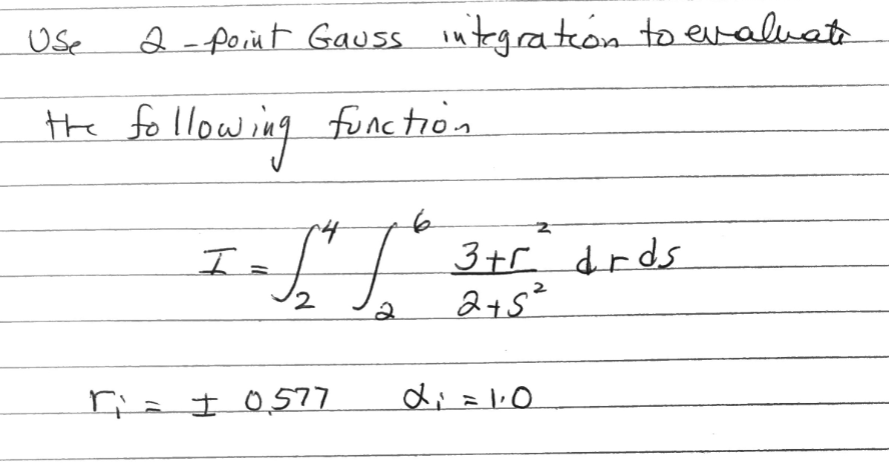 Use 2-point Gauss integration to evaluate
the following function
I = ∫₂⁴ ∫₂⁶ (3+r²)/(2+s²) dr ds
rᵢ = ± 0.577 αᵢ = 1.0